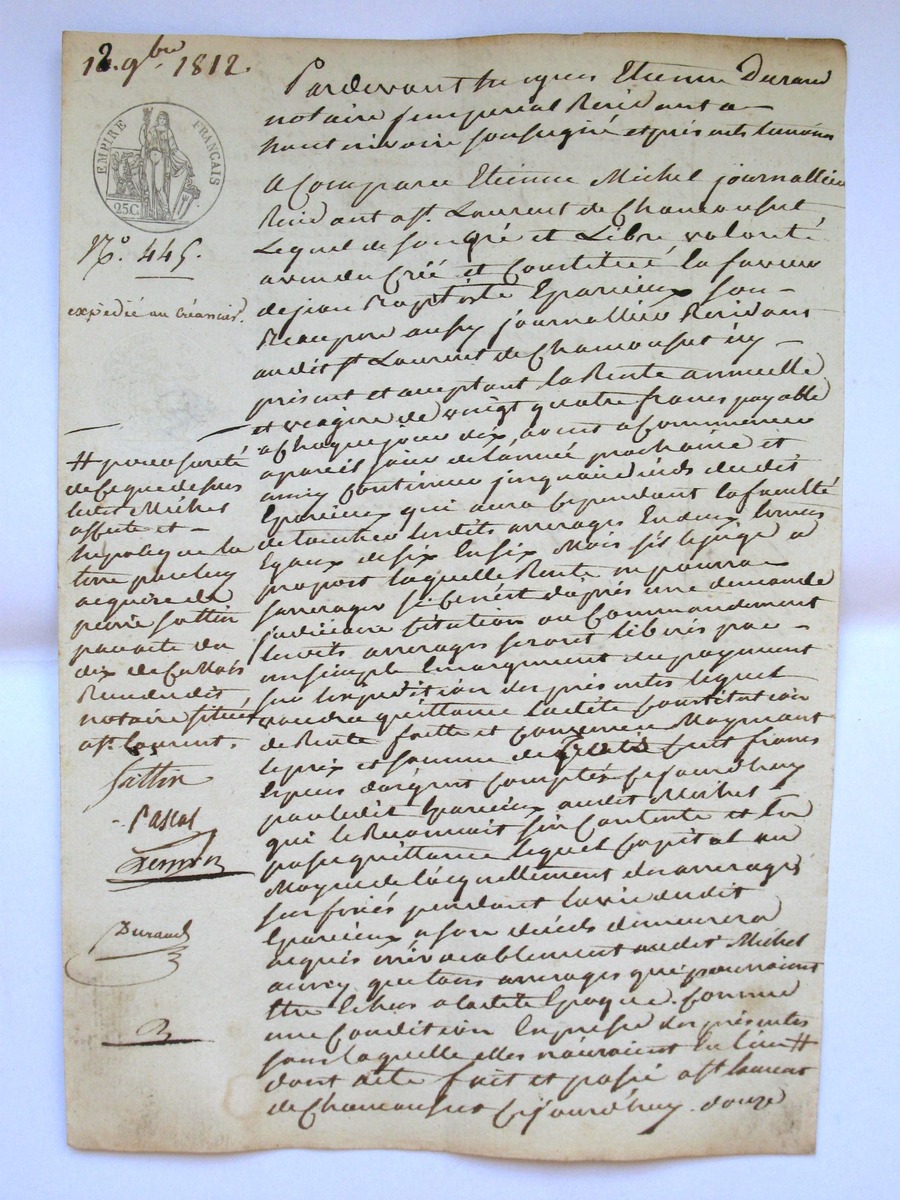 12. 9bre 1812.
EMPIRE FRANÇAIS
25C.
No. 445.
expédié au Créancier.
Pardevant Jacques Etienne Durand
notaire Imperial Residant a
haut rivoire soussigné et présents temoins
a Comparu Etienne Michel journallier
Residant a St. Laurent de Chamousset
Lequel de son gré et Libre volonté
a vendu Créé et Constitué la faveur
de jean Baptiste Eparvieux son
Beaupere aussy journallier Residant
audit St Laurent de Chamousset icy
présent et acceptant la Rente annuelle
et viagere de vingt quatre francs payable
a Chaque jour dix, avant a Commencer
a pareil jour de lannée prochaine et
ainsy Continuer jusquau déceds dudit
Eparvieux qui aura Cependant la faculté
de toucher lesdits arrerages En deux termes
Egaux de six En six Mois s'il le juge a
propos laquelle Rente ne pourra
sarrerager si ce n'est daprés une demande
judiciaire Citation ou Commandement
lesdits arrerages seront libérés par
un simple Emargement du payement
sur lexpedition des présentes lequel
vaudra quittance ladite Constitution
de Rente faitte et Convenue Moyenant
le prix et somme de cent francs
Especes d'argent Comptés Cejourdhuy
par ledit Eparvieux audit Michel
qui le Reconnait s'en Contente et En
passe quittance lequel Capital au
Moyen de lacquittement des arrerages
sus fixés pendant la vie dudit
Eparvieux a son déceds demeurera
acquis irrévocablement audit Michel
aussy que tous arrerages qui pourraient
Etre Echus a ladite Epoque. Comme
une Condition Expresse des présentes
sans laquelle elles n'auraient Eu lieu #
dont acte fait et passé a St laurent
de Chamousset Cejourd'huy douze
# pour sureté
de Ce que dessus
ledit Michel
affecte et
hypoteque la
terre par luy
acquise de
pierre sottin
par acte du
dix de Ce Mois
Reçu dudit
notaire située
a St. laurent.
Sottin
Pascal
Durand